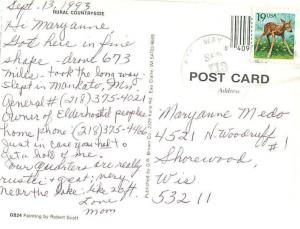 Sept. 13, 1993
RURAL COUNTRYSIDE
Hi Maryanne,
Got here in fine
shape - drove 673
miles. took the long way.
Slept in Mankato, Mn,
General # (218) 375-4021
Owner of Elderhostel peoples
home phone (218) 375-4466
Just in case you need to
get a hold of me.
Our quarters are really
rustic & great; very
near the lake: like 20 ft.
Love
Mom
GS24 Painting by Robert Scott
Published by G.R. Brown Co.
WAY
SEP
19 USA
POST CARD
Address
Maryanne Medo
4521 N. Woodruff
#1
Shorewood,
Wis
53211